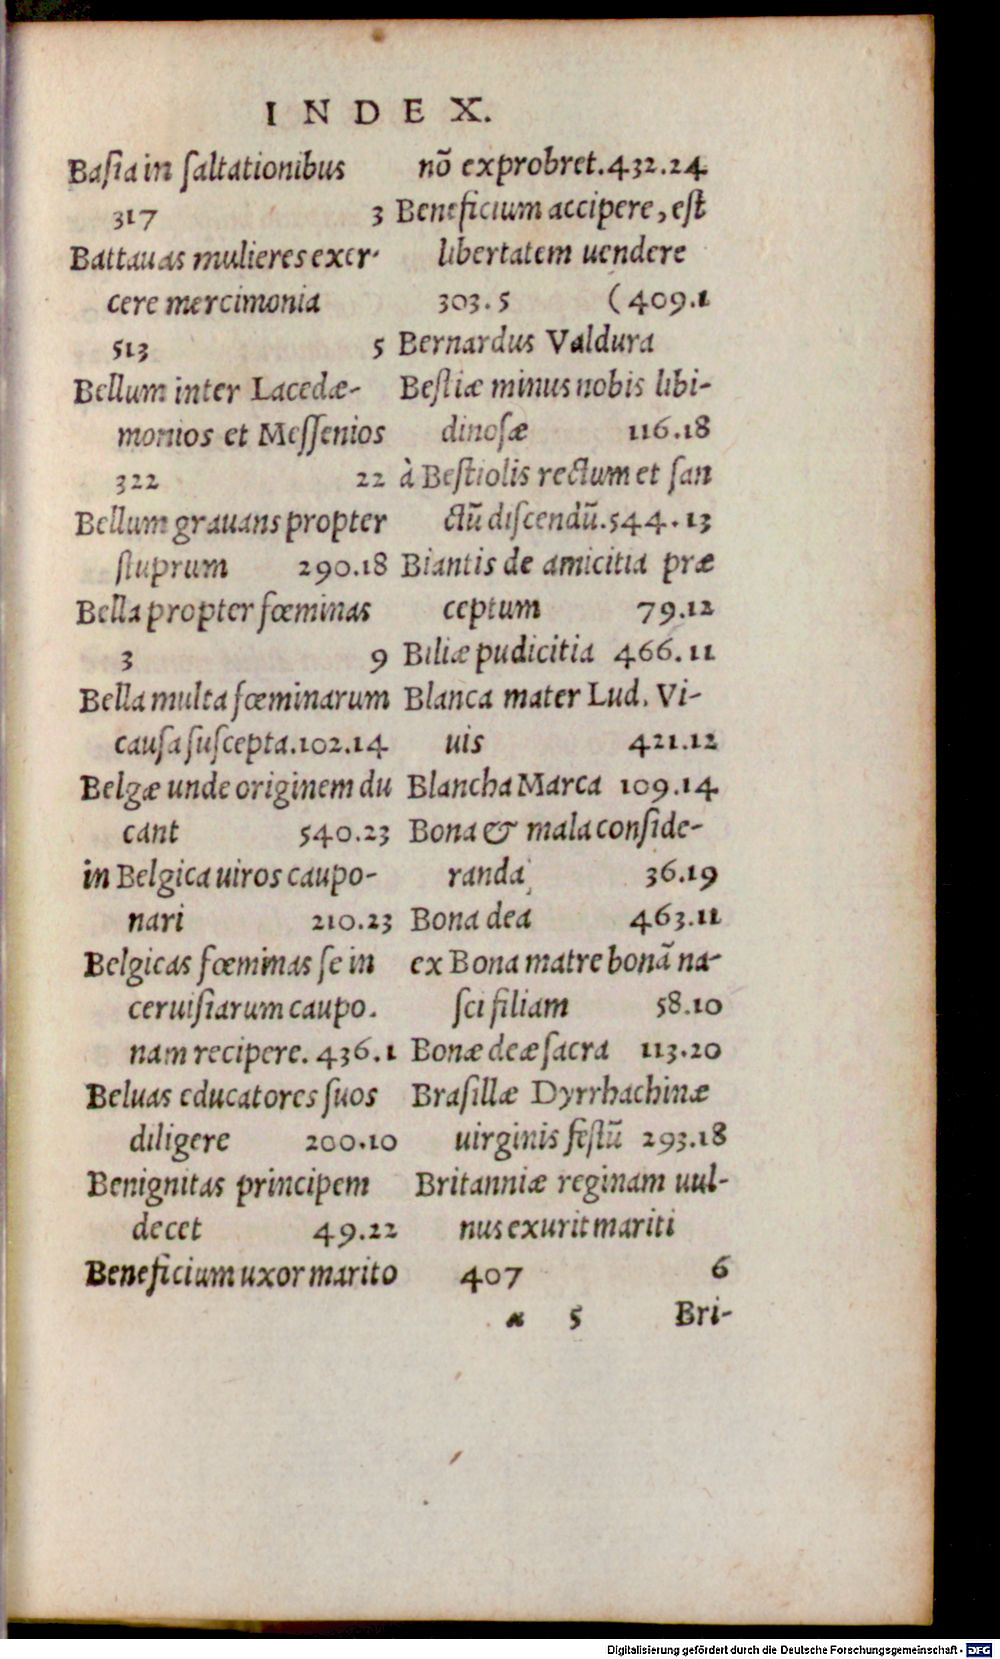 INDEX.
Basia in saltationibus
317 3
Battauas mulieres exer-
cere mercimonia
513 5
Bellum inter Lacedæ-
monios et Messenios
322 22
Bellum grauans propter
stuprum 290.18
Bella propter fœminas
3 9
Bella multa fœminarum
causa suscepta.102.14
Belgæ unde originem du
cant 540.23
in Belgica uiros caupo-
nari 210.23
Belgicas fœminas se in
ceruisiarum caupo.
nam recipere. 436.1
Beluas educatores suos
diligere 200.10
Benignitas principem
decet 49.22
Beneficium uxor marito
nõ exprobret.432.24
Beneficium accipere, est
libertatem uendere
303.5 (409.1
Bernardus Valdura
Bestiæ minus nobis libi-
dinosæ 116.18
à Bestiolis rectum et san
ctũ discendũ.544.13
Biantis de amicitia præ
ceptum 79.12
Biliæ pudicitia 466.11
Blanca mater Lud. Vi-
uis 421.12
Blancha Marca 109.14
Bona & mala conside-
randa 36.19
Bona dea 463.11
ex Bona matre bonã na-
sci filiam 58.10
Bonæ deæ sacra 113.20
Brasillæ Dyrrhachinæ
uirginis festũ 293.18
Britanniæ reginam uul-
nus exurit mariti
407 6
a 5 Bri-
Digitalisierung gefördert durch die Deutsche Forschungsgemeinschaft - DFG